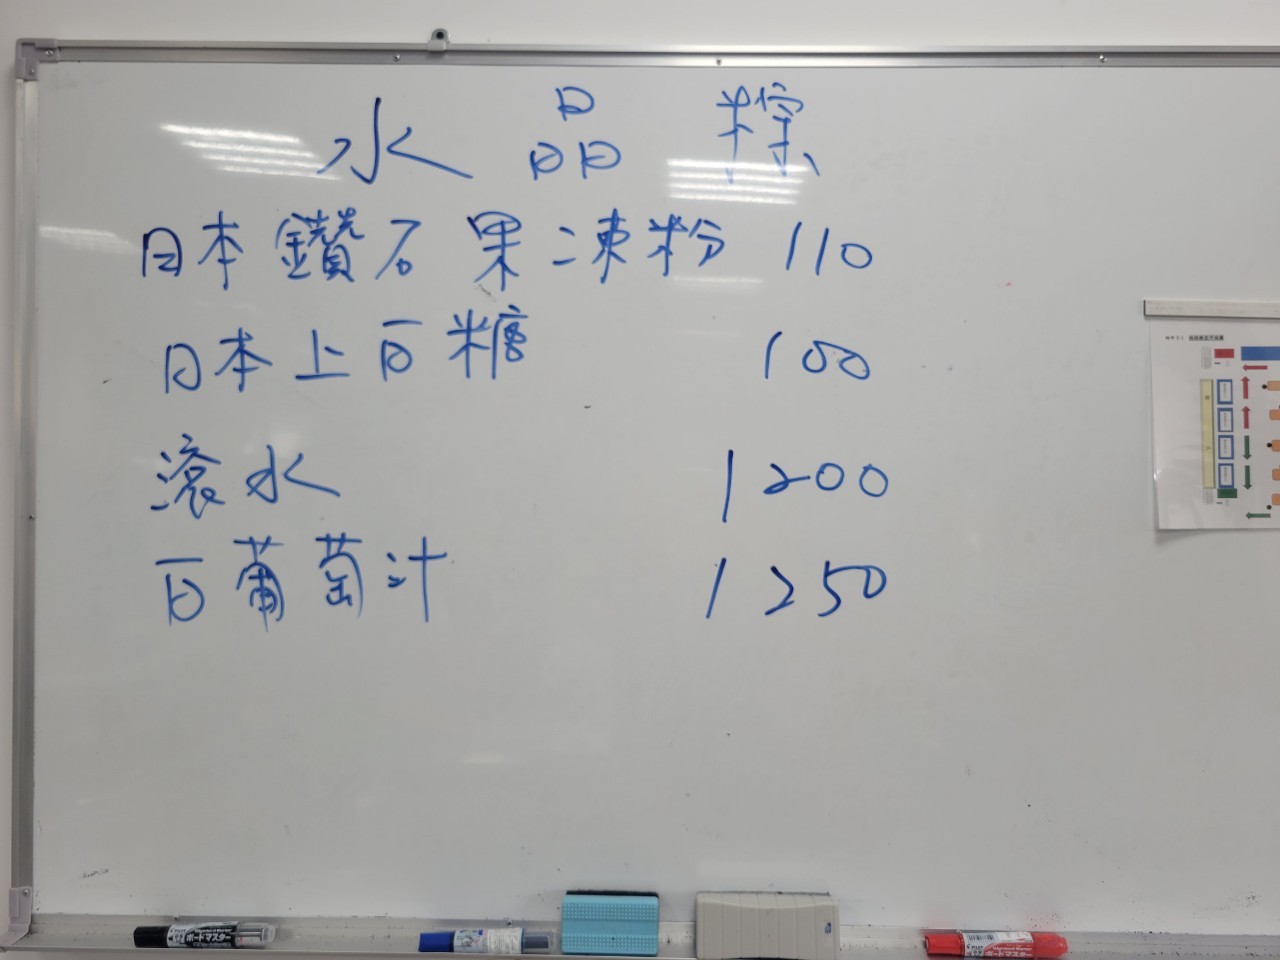 水晶粽
日本鑽石果凍粉 110
日本上白糖 100
滾水 1200
白葡萄汁 1250
ボードマスター
ボードマスター